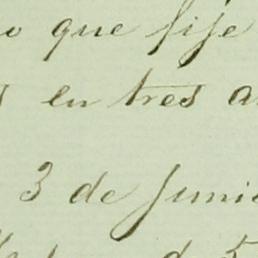 que fije
en tres
3 de Junio
de 5